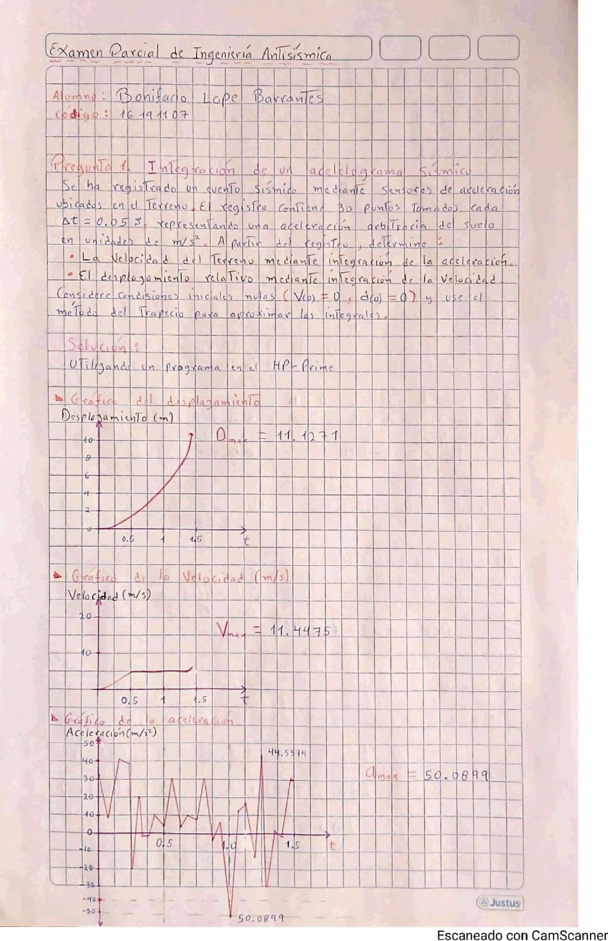 Examen Parcial de Ingeniería Antisísmica
Alumno: Bonifacio Lope Barrantes
Código: 16191107
Pregunta 1. Integración de un acelelograma Sísmico
Se ha registrado un evento Sísmico mediante sensores de aceleración
ubicados en el Terreno. El registro contiene 30 puntos Tomados cada
Δt = 0.05 s, representando una aceleración arbitraria del suelo
en unidades de m/s². A partir del registro, determine:
• La Velocidad del Terreno mediante integración de la aceleración.
• El desplazamiento relativo mediante integración de la Velocidad
Considere condiciones iniciales nulas (V(0) = 0, d(0) = 0) y use el
método del Trapecio para aproximar las integrales.
Solución:
Utilizando un programa en el HP-Prime
Gráfico del desplazamiento
Desplazamiento (m)
Dmax = 11.1271
10
8
6
4
2
0
0.5 1 1.5 t
Gráfico de la Velocidad (m/s)
Velocidad (m/s)
20
Vmax = 11.4475
10
0.5 1 1.5 t
Gráfico de la aceleración
Aceleración (m/s²)
50
40
44.5574
amax = 50.0899
30
20
10
0
0.5 1.0 1.5 t
-10
-20
-30
-40
-50
50.0899
Justus
Escaneado con CamScanner